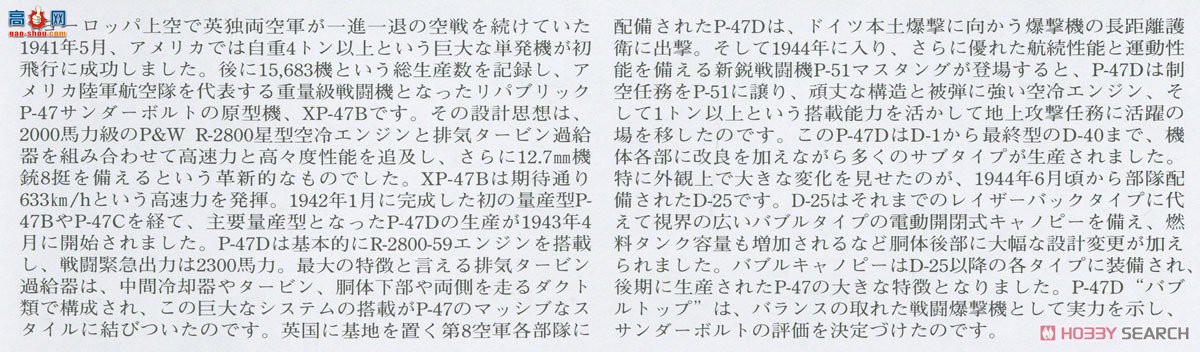 ーロッパ上空で英独両空軍が一進一退の空戦を続けていた
1941年5月、アメリカでは自重4トン以上という巨大な単発機が初
飛行に成功しました。後に15,683機という総生産数を記録し、ア
メリカ陸軍航空隊を代表する重量級戦闘機となったリパブリック
P-47サンダーボルトの原型機、XP-47Bです。その設計思想は、
2000馬力級のP&W R-2800星型空冷エンジンと排気タービン過給
器を組み合わせて高速力と高々度性能を追及し、さらに12.7㎜機
銃8挺を備えるという革新的なものでした。XP-47Bは期待通り
633㎞/hという高速力を発揮。1942年1月に完成した初の量産型P-
47BやP-47Cを経て、主要量産型となったP-47Dの生産が1943年4
月に開始されました。P-47Dは基本的にR-2800-59エンジンを搭載
し、戦闘緊急出力は2300馬力。最大の特徴と言える排気タービン
過給器は、中間冷却器やタービン、胴体下部や両側を走るダクト
類で構成され、この巨大なシステムの搭載がP-47のマッシブなス
タイルに結びついたのです。英国に基地を置く第8空軍各部隊に
配備されたP-47Dは、ドイツ本土爆撃に向かう爆撃機の長距離護
衛に出撃。そして1944年に入り、さらに優れた航続性能と運動性
能を備える新鋭戦闘機P-51マスタングが登場すると、P-47Dは制
空任務をP-51に譲り、頑丈な構造と被弾に強い空冷エンジン、そ
して1トン以上という搭載能力を活かして地上攻撃任務に活躍の
場を移したのです。このP-47DはD-1から最終型のD-40まで、機
体各部に改良を加えながら多くのサブタイプが生産されました。
特に外観上で大きな変化を見せたのが、1944年6月頃から部隊配
備されたD-25です。D-25はそれまでのレイザーバックタイプに代
えて視界の広いバブルタイプの電動開閉式キャノピーを備え、燃
料タンク容量も増加されるなど胴体後部に大幅な設計変更が加え
られました。バブルキャノピーはD-25以降の各タイプに装備され、
後期に生産されたP-47の大きな特徴となりました。P-47D“バブ
ルトップ”は、バランスの取れた戦闘爆撃機として実力を示し、
サンダーボルトの評価を決定づけたのです。
高岛吧
gao8dou.com
HOBBY SEARCH